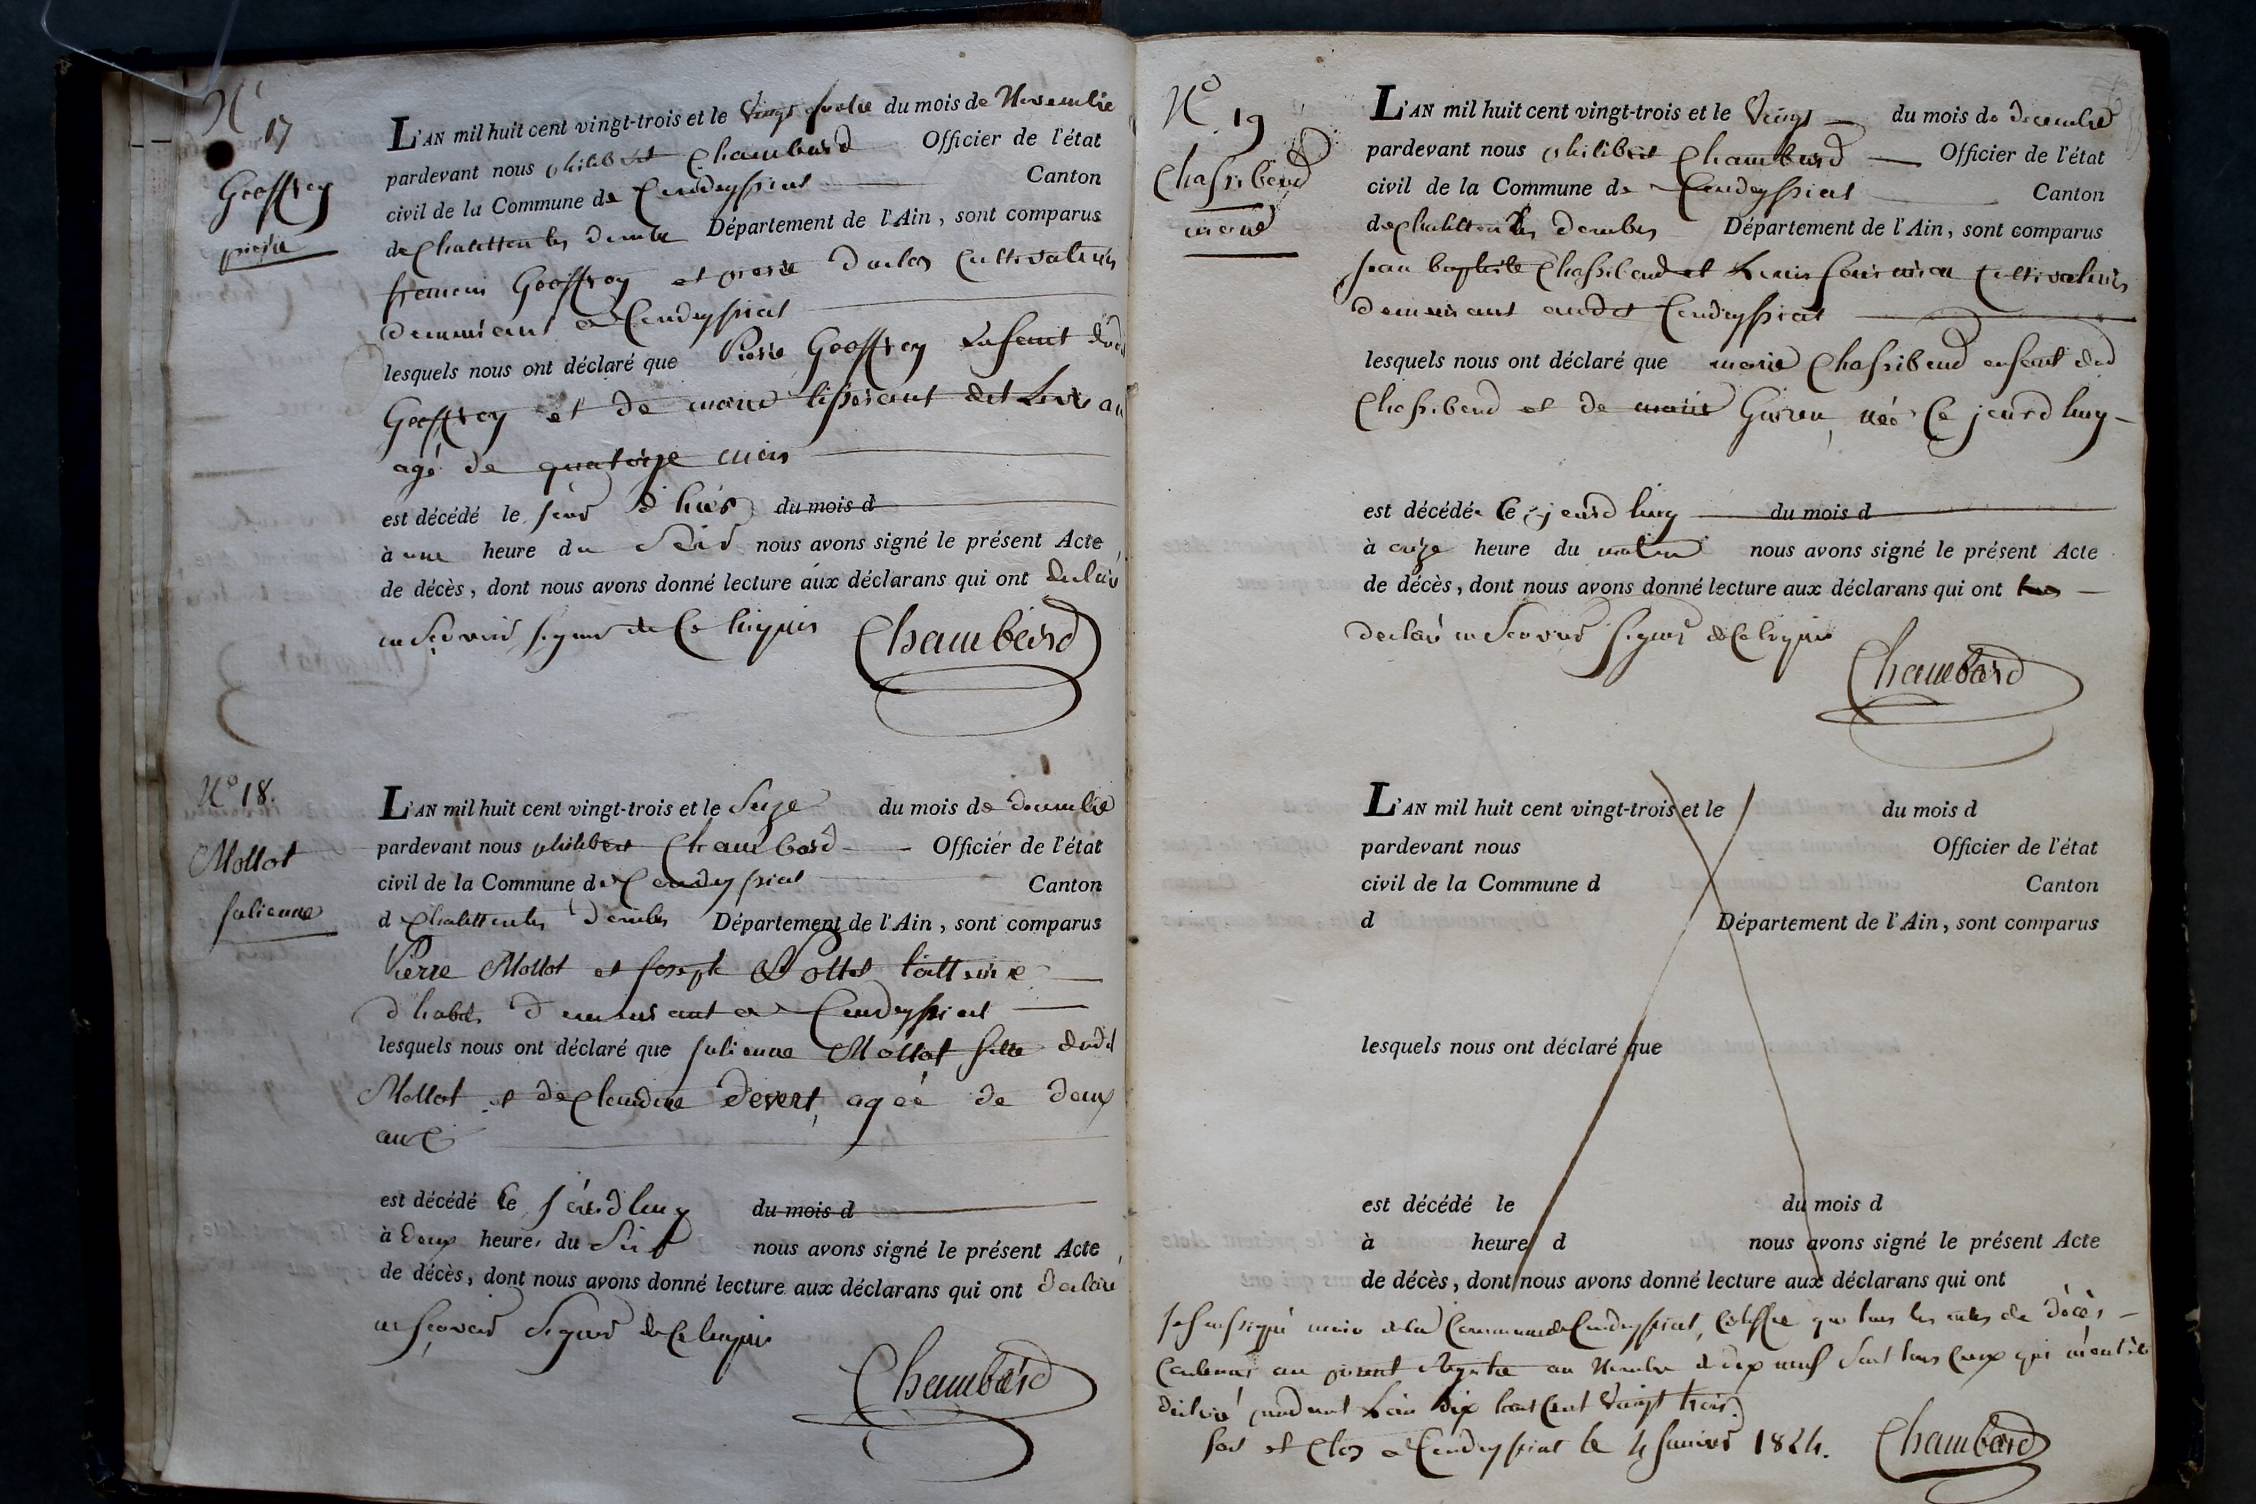 N°
17
Geoffray
pierre
L'AN mil huit cent vingt-trois et le Vingt quatre du mois de Novembre
pardevant nous philibert Chambard Officier de l'état
civil de la Commune de Condeyssiat Canton
de Chatillon les dombes Département de l'Ain, sont comparus
francois Geoffray et pierre cultivateurs
demeurant a Condeyssiat
lesquels nous ont déclaré que Pierre Geoffray Enfant dud
Geoffray et de marie tisserant
agé de quatorze mois
est décédé le jour d'hier du mois d
à une heure du Soir nous avons signé le présent Acte
de décès, dont nous avons donné lecture aux déclarans qui ont declaré
ne Scavoir signer de Ce Enquis
Chambard
N° 18.
Mollat
julienne
L'AN mil huit cent vingt-trois et le Seize du mois de decembre
pardevant nous philibert Chambard Officier de l'état
civil de la Commune de Condeyssiat Canton
d Chatillon les dombes Département de l'Ain, sont comparus
Pierre Mollat et joseph tailleur
d'habits demeurant a Condeyssiat
lesquels nous ont déclaré que julienne Mollat fille dudit
Mollat et de Claudine Devert, agée de deux
ans
est décédé Ce jourdhuy du mois d
à deux heures du Soir nous avons signé le présent Acte
de décès, dont nous avons donné lecture aux déclarans qui ont declaré
ne scavoir Signer de Ce Enquis
Chambard
N°
19
Chassibend
marie
L'AN mil huit cent vingt-trois et le Vingt du mois de decembre
pardevant nous philibert Chambard Officier de l'état
civil de la Commune de Condeyssiat Canton
de Chatillon les dombes Département de l'Ain, sont comparus
jean baptiste Chassibend et Louis cultivateurs
demeurant audit Condeyssiat
lesquels nous ont déclaré que marie Chassibend enfant dud
Chassibend et de marie née Ce jourdhuy
est décédée Ce jourdhuy du mois d
à onze heure du matin nous avons signé le présent Acte
de décès, dont nous avons donné lecture aux déclarans qui ont
declaré ne Scavoir Signer de Ce Enquis
Chambard
L'AN mil huit cent vingt-trois et le du mois d
pardevant nous Officier de l'état
civil de la Commune d Canton
d Département de l'Ain, sont comparus
lesquels nous ont déclaré que
est décédé le du mois d
à heure d nous avons signé le présent Acte
de décès, dont nous avons donné lecture aux déclarans qui ont
Je soussigné maire de la Commune de Condeyssiat, Certiffie que tous les actes de décès
Contenus au présent Registre au Nombre de dix neuf Sont tous Ceux qui m'ont été
déclaré pendant L'an dix huit Cent Vingt trois.
fait et Clos a Condeyssiat le 4 janvier 1824.
Chambard